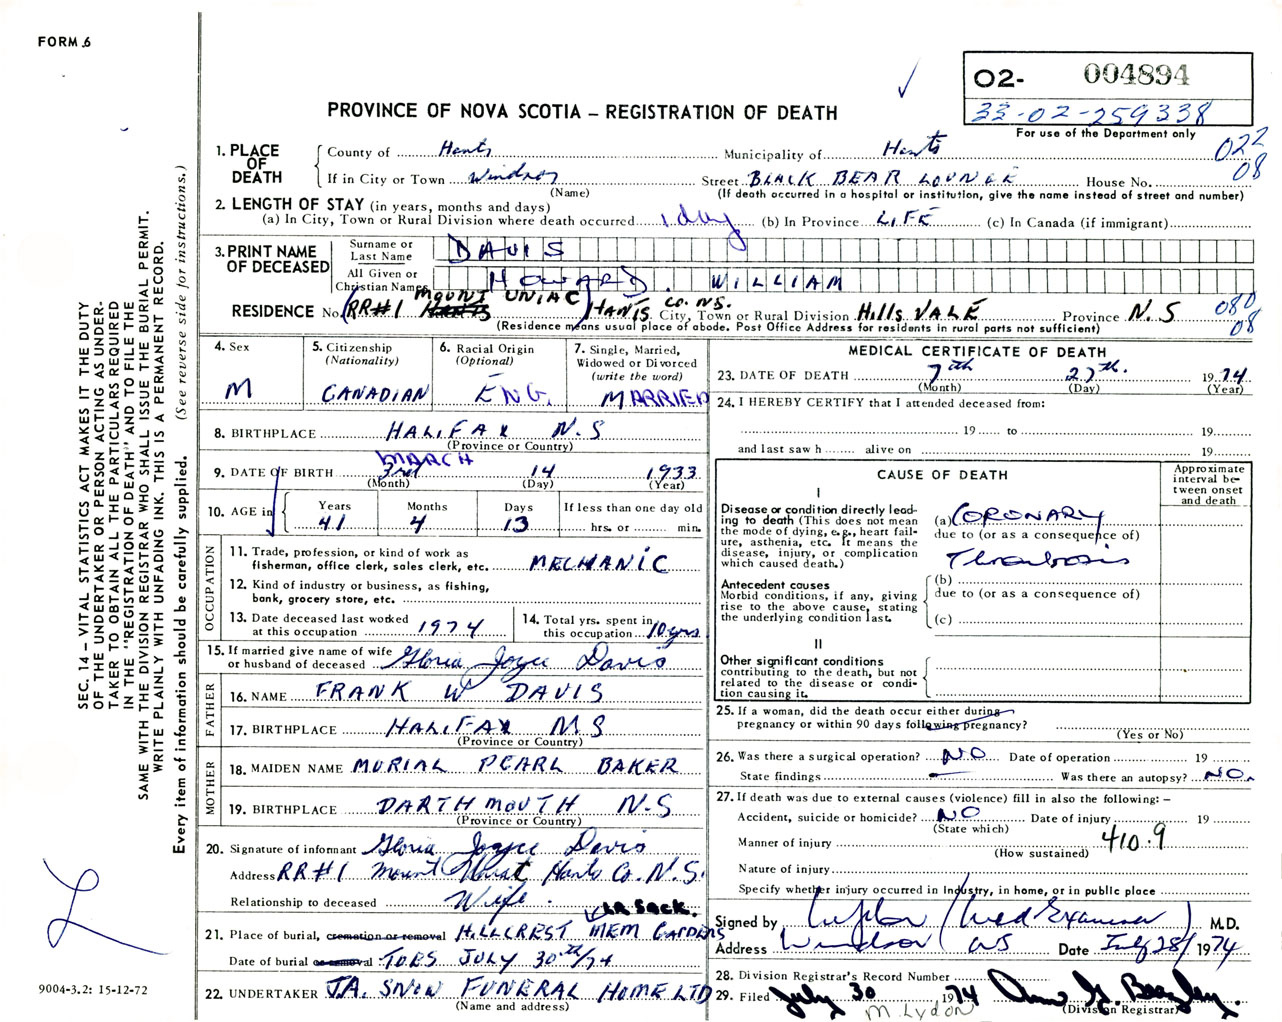 FORM 6
02- 004894
33-02-259338
For use of the Department only
PROVINCE OF NOVA SCOTIA – REGISTRATION OF DEATH
022
08
1. PLACE OF DEATH
County of Hants Municipality of Hants
If in City or Town Windsor Street BLACK BEAR LOUNGE House No.
(Name) (If death occurred in a hospital or institution, give the name instead of street and number)
2. LENGTH OF STAY (in years, months and days)
(a) In City, Town or Rural Division where death occurred 1 day (b) In Province LIFE (c) In Canada (if immigrant)
3. PRINT NAME OF DECEASED
Surname or Last Name DAVIS
All Given or Christian Names HOWARD WILLIAM
RESIDENCE No. (RR#1 MOUNT UNIAC) HANTS CO. NS. City, Town or Rural Division HILLS VALE Province N.S
080
08
(Residence means usual place of abode. Post Office Address for residents in rural parts not sufficient)
4. Sex
M
5. Citizenship (Nationality)
CANADIAN
6. Racial Origin (Optional)
ENG.
7. Single, Married, Widowed or Divorced (write the word)
MARRIED
8. BIRTHPLACE HALIFAX N.S
(Province or Country)
9. DATE OF BIRTH MARCH 3rd 14 1933
(Month) (Day) (Year)
10. AGE in
Years Months Days If less than one day old
41 4 13 hrs. or min.
OCCUPATION
11. Trade, profession, or kind of work as fisherman, office clerk, sales clerk, etc. MECHANIC
12. Kind of industry or business, as fishing, bank, grocery store, etc.
13. Date deceased last worked at this occupation 1974
14. Total yrs. spent in this occupation 10 yrs
15. If married give name of wife or husband of deceased Gloria Joyce Davis
FATHER
16. NAME FRANK W DAVIS
17. BIRTHPLACE HALIFAX N.S
(Province or Country)
MOTHER
18. MAIDEN NAME MURIAL PEARL BAKER
19. BIRTHPLACE DARTHMOUTH N.S
(Province or Country)
20. Signature of informant Gloria Joyce Davis
Address RR#1 Mount Hants Co. N.S.
Relationship to deceased Wife.
LR SACK.
21. Place of burial, cremation or removal HILLCREST MEM GARDENS
Date of burial or removal TUES JULY 30th/74
22. UNDERTAKER J.A. SNOW FUNERAL HOME LTD
(Name and address)
MEDICAL CERTIFICATE OF DEATH
23. DATE OF DEATH 7th 27th. 1974
(Month) (Day) (Year)
24. I HEREBY CERTIFY that I attended deceased from:
19 to 19
and last saw h alive on 19
CAUSE OF DEATH
Approximate interval between onset and death
I
Disease or condition directly leading to death (This does not mean the mode of dying, e.g., heart failure, asthenia, etc. It means the disease, injury, or complication which caused death.)
(a) CORONARY
due to (or as a consequence of)
Thrombosis
Antecedent causes
Morbid conditions, if any, giving rise to the above cause, stating the underlying condition last.
(b)
due to (or as a consequence of)
(c)
II
Other significant conditions contributing to the death, but not related to the disease or condition causing it.
25. If a woman, did the death occur either during pregnancy or within 90 days following pregnancy?
(Yes or No)
26. Was there a surgical operation? NO Date of operation 19
State findings Was there an autopsy? NO.
27. If death was due to external causes (violence) fill in also the following: –
Accident, suicide or homicide? NO Date of injury 19
(State which)
Manner of injury 410.9
(How sustained)
Nature of injury
Specify whether injury occurred in Industry, in home, or in public place
Signed by (Med Examiner) M.D.
Address Windsor NS Date July 28/ 1974
28. Division Registrar's Record Number
29. Filed July 30 1974
(Division Registrar)
M. Lydon
SEC. 14 – VITAL STATISTICS ACT MAKES IT THE DUTY
OF THE UNDERTAKER OR PERSON ACTING AS UNDER-
TAKER TO OBTAIN ALL THE PARTICULARS REQUIRED
IN THE "REGISTRATION OF DEATH" AND TO FILE THE
SAME WITH THE DIVISION REGISTRAR WHO SHALL ISSUE THE BURIAL PERMIT.
WRITE PLAINLY WITH UNFADING INK. THIS IS A PERMANENT RECORD.
Every item of information should be carefully supplied. (See reverse side for instructions.)
9004-3.2: 15-12-72